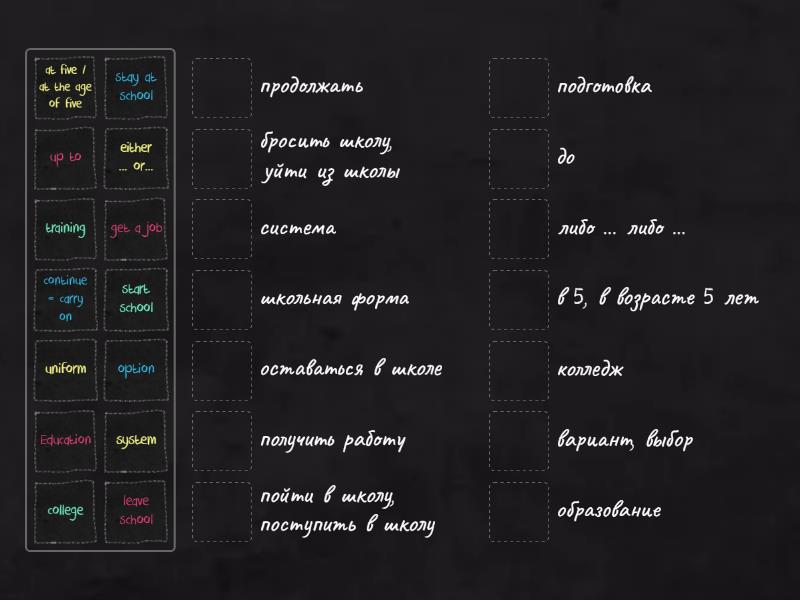 at five /
at the age
of five
stay at
school
up to
either
... or...
training
get a job
continue
= carry
on
start
school
uniform
option
Education
system
college
leave
school
продолжать
бросить школу,
уйти из школы
система
школьная форма
оставаться в школе
получить работу
пойти в школу,
поступить в школу
подготовка
до
либо ... либо ...
в 5, в возрасте 5 лет
колледж
вариант, выбор
образование